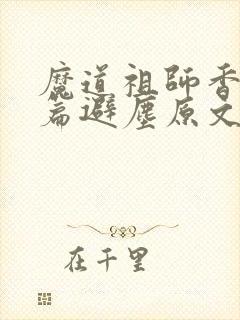 魔道祖師香
篇避塵原文
在千里